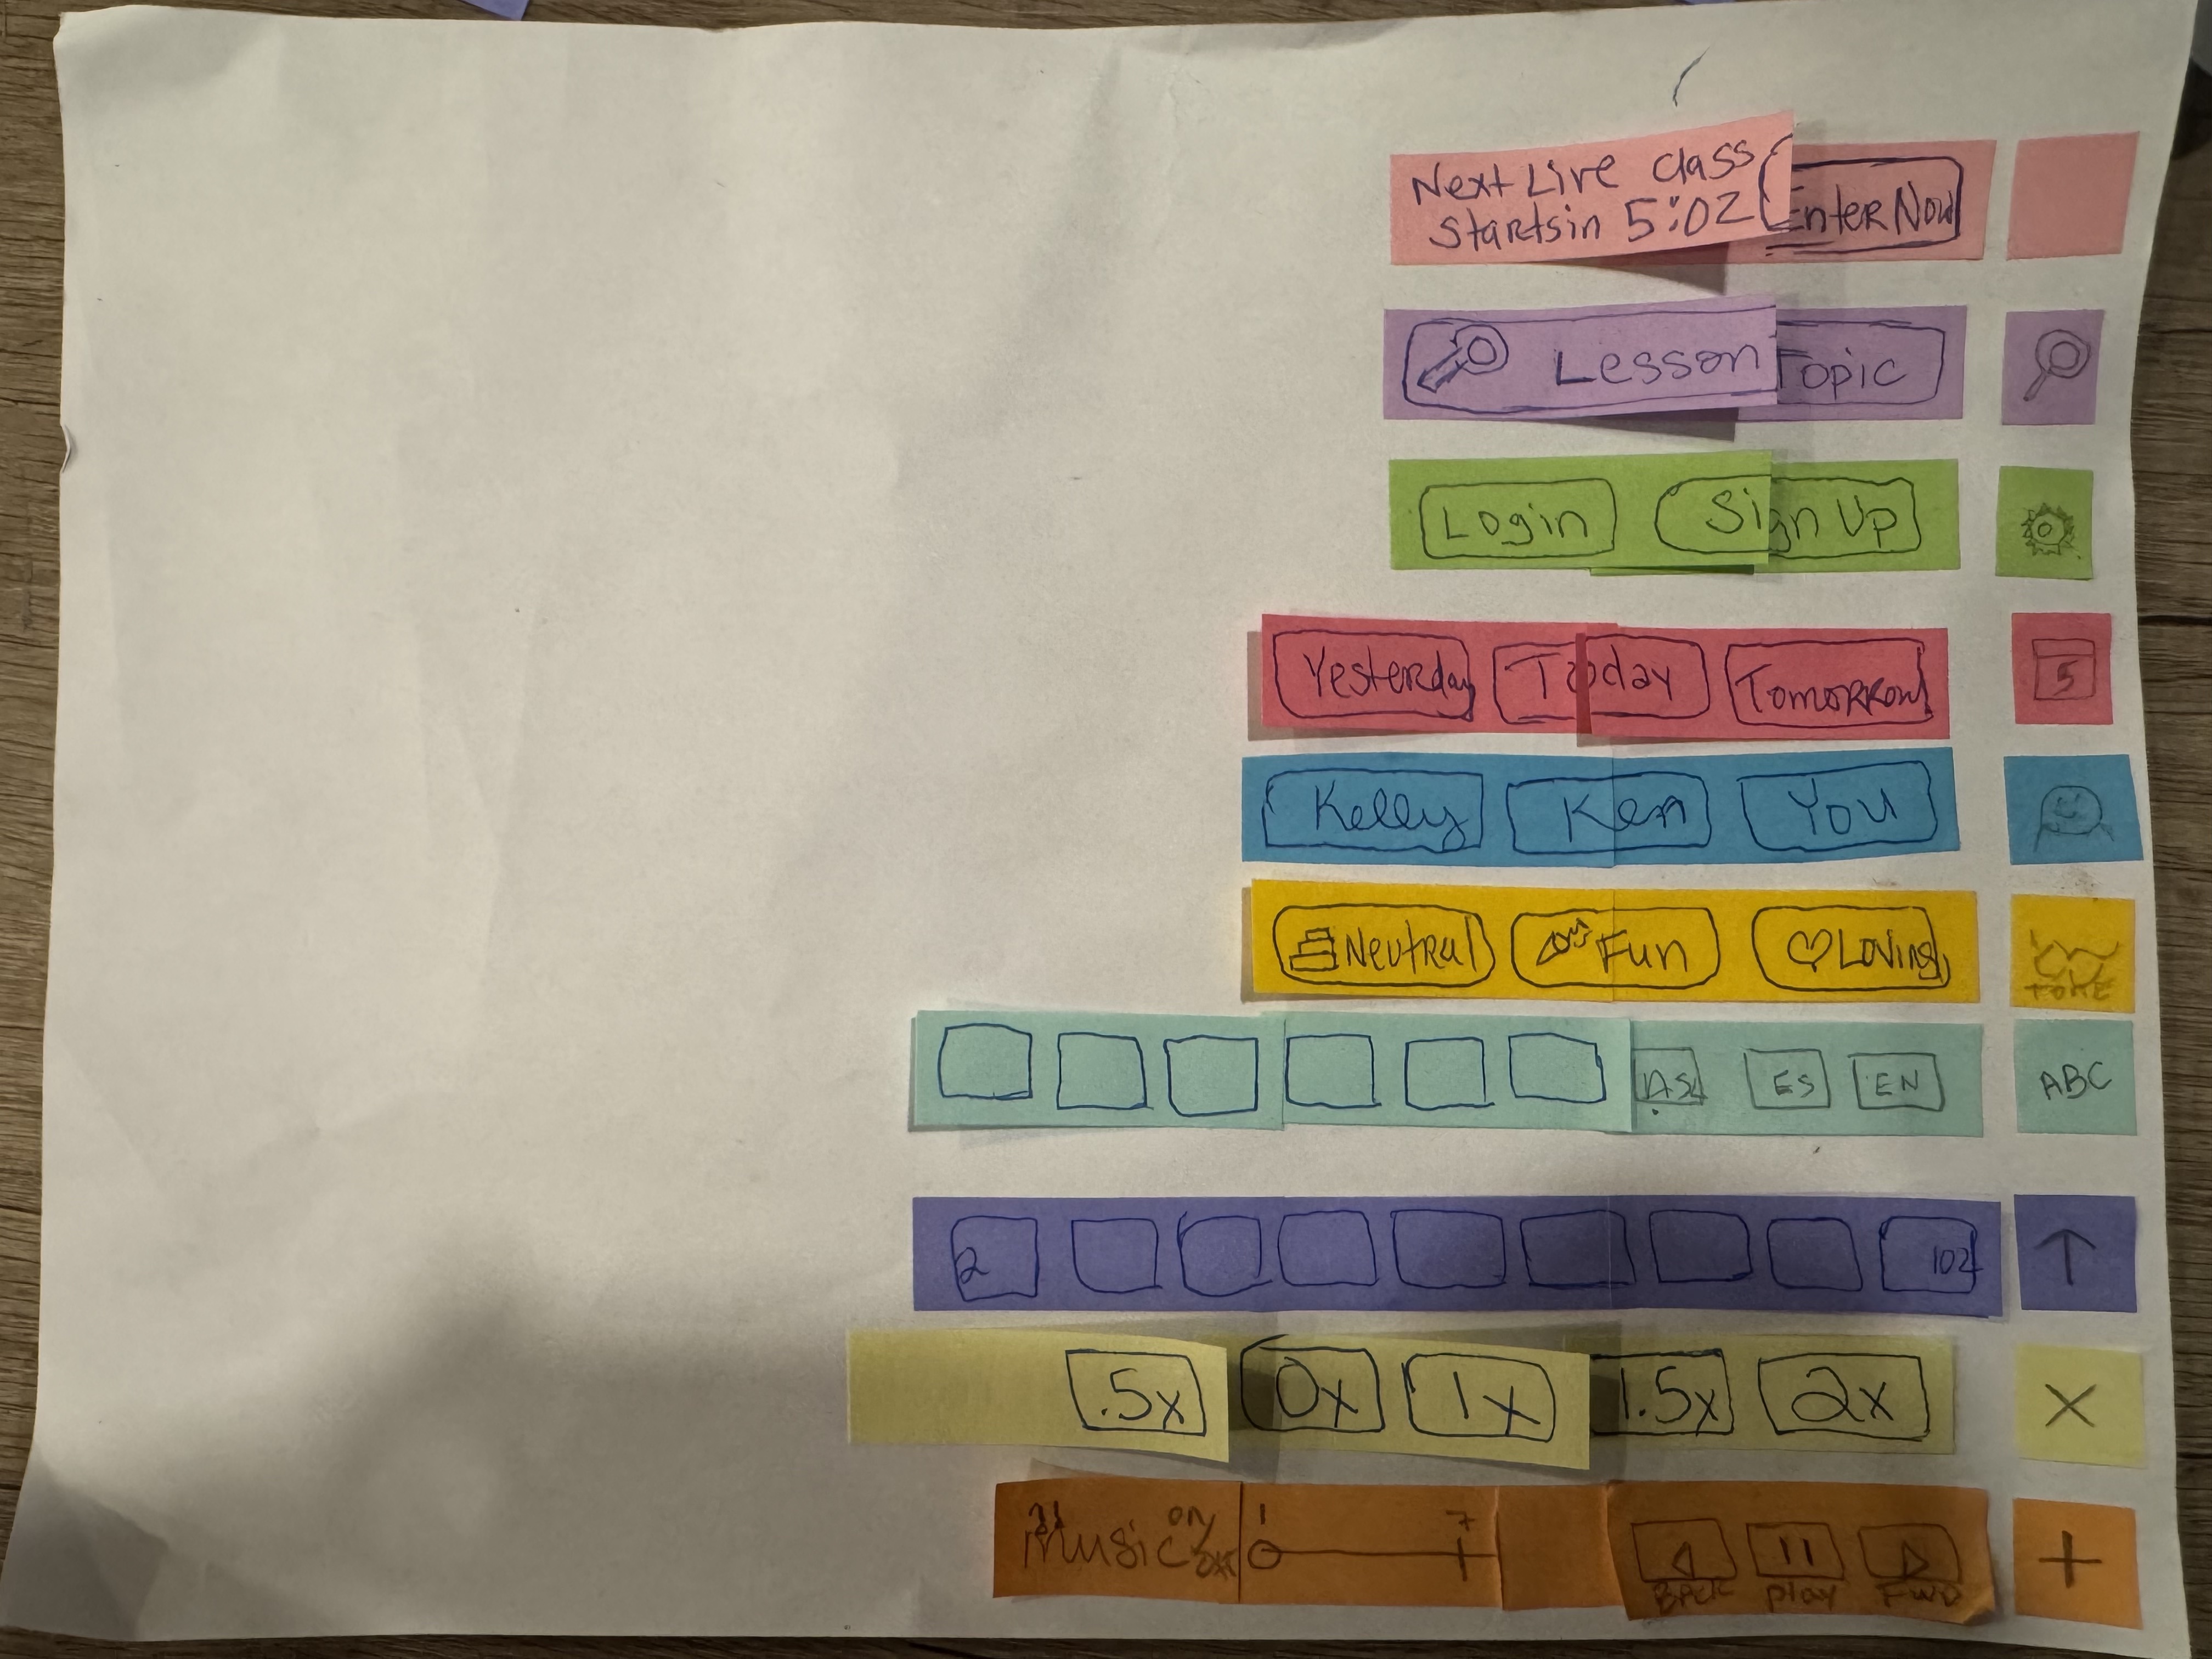 Next Live class
starts in 5:02
Enter Now
Lesson Topic
Login
Sign Up
Yesterday
Today
Tomorrow
5
Kelly
Ken
You
Neutral
Fun
Loving
TONE
ASL
ES
EN
ABC
2
102
.5x
0x
1x
1.5x
2x
×
Music
on/off
1
7
Back
play
Fwd
+